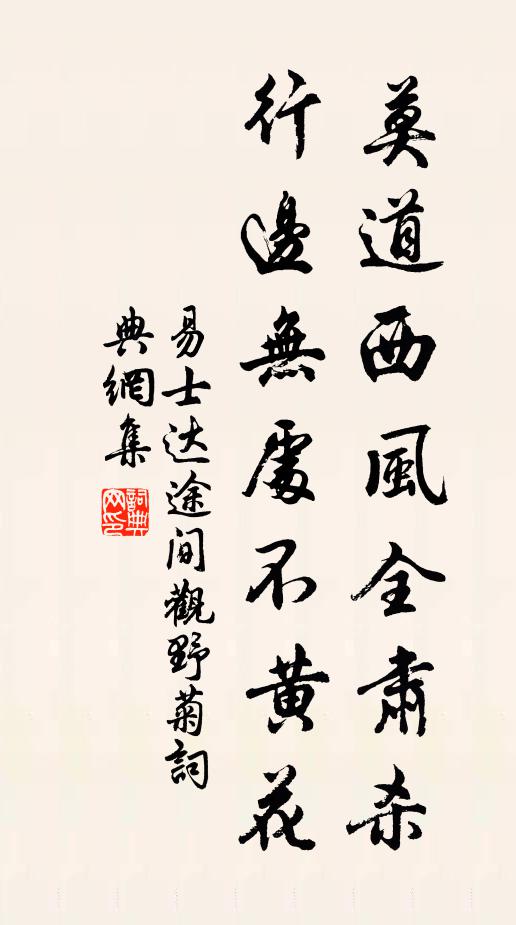 莫道西風全肅杀
行邊無處不黄花
易士达途间觀野菊詞
典網集
詞典
网印